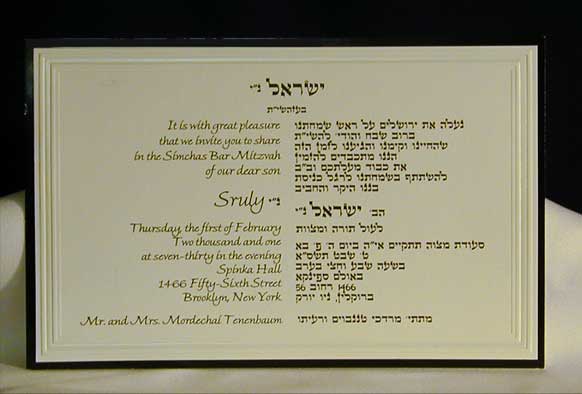 ישראל נ״י
בעזהשי״ת
It is with great pleasure
that we invite you to share
in the Simchas Bar Mitzvah
of our dear son
Sruly נ״י
Thursday, the first of February
Two thousand and one
at seven-thirty in the evening
Spinka Hall
1466 Fifty-Sixth Street
Brooklyn, New York
Mr. and Mrs. Mordechai Tenenbaum
נעלה את ירושלים על ראש שמחתנו
ברוב שבח והודי׳ להשי״ת
שהחיינו וקימנו והגיענו לזמן הזה
הננו מתכבדים להזמין
את כבוד מעלתכם וב״ב
להשתתף בשמחתנו לרגל כניסת
בננו היקר והחביב
הב׳ ישראל נ״י
לעול תורה ומצוות
סעודת מצוה תתקיים אי״ה ביום ה׳ פ׳ בא
ט׳ שבט תשס״א
בשעה שבע וחצי בערב
באולם ספינקא
1466 רחוב 56
ברוקלין, ניו יורק
מתתי׳ מרדכי טננבוים ורעיתו